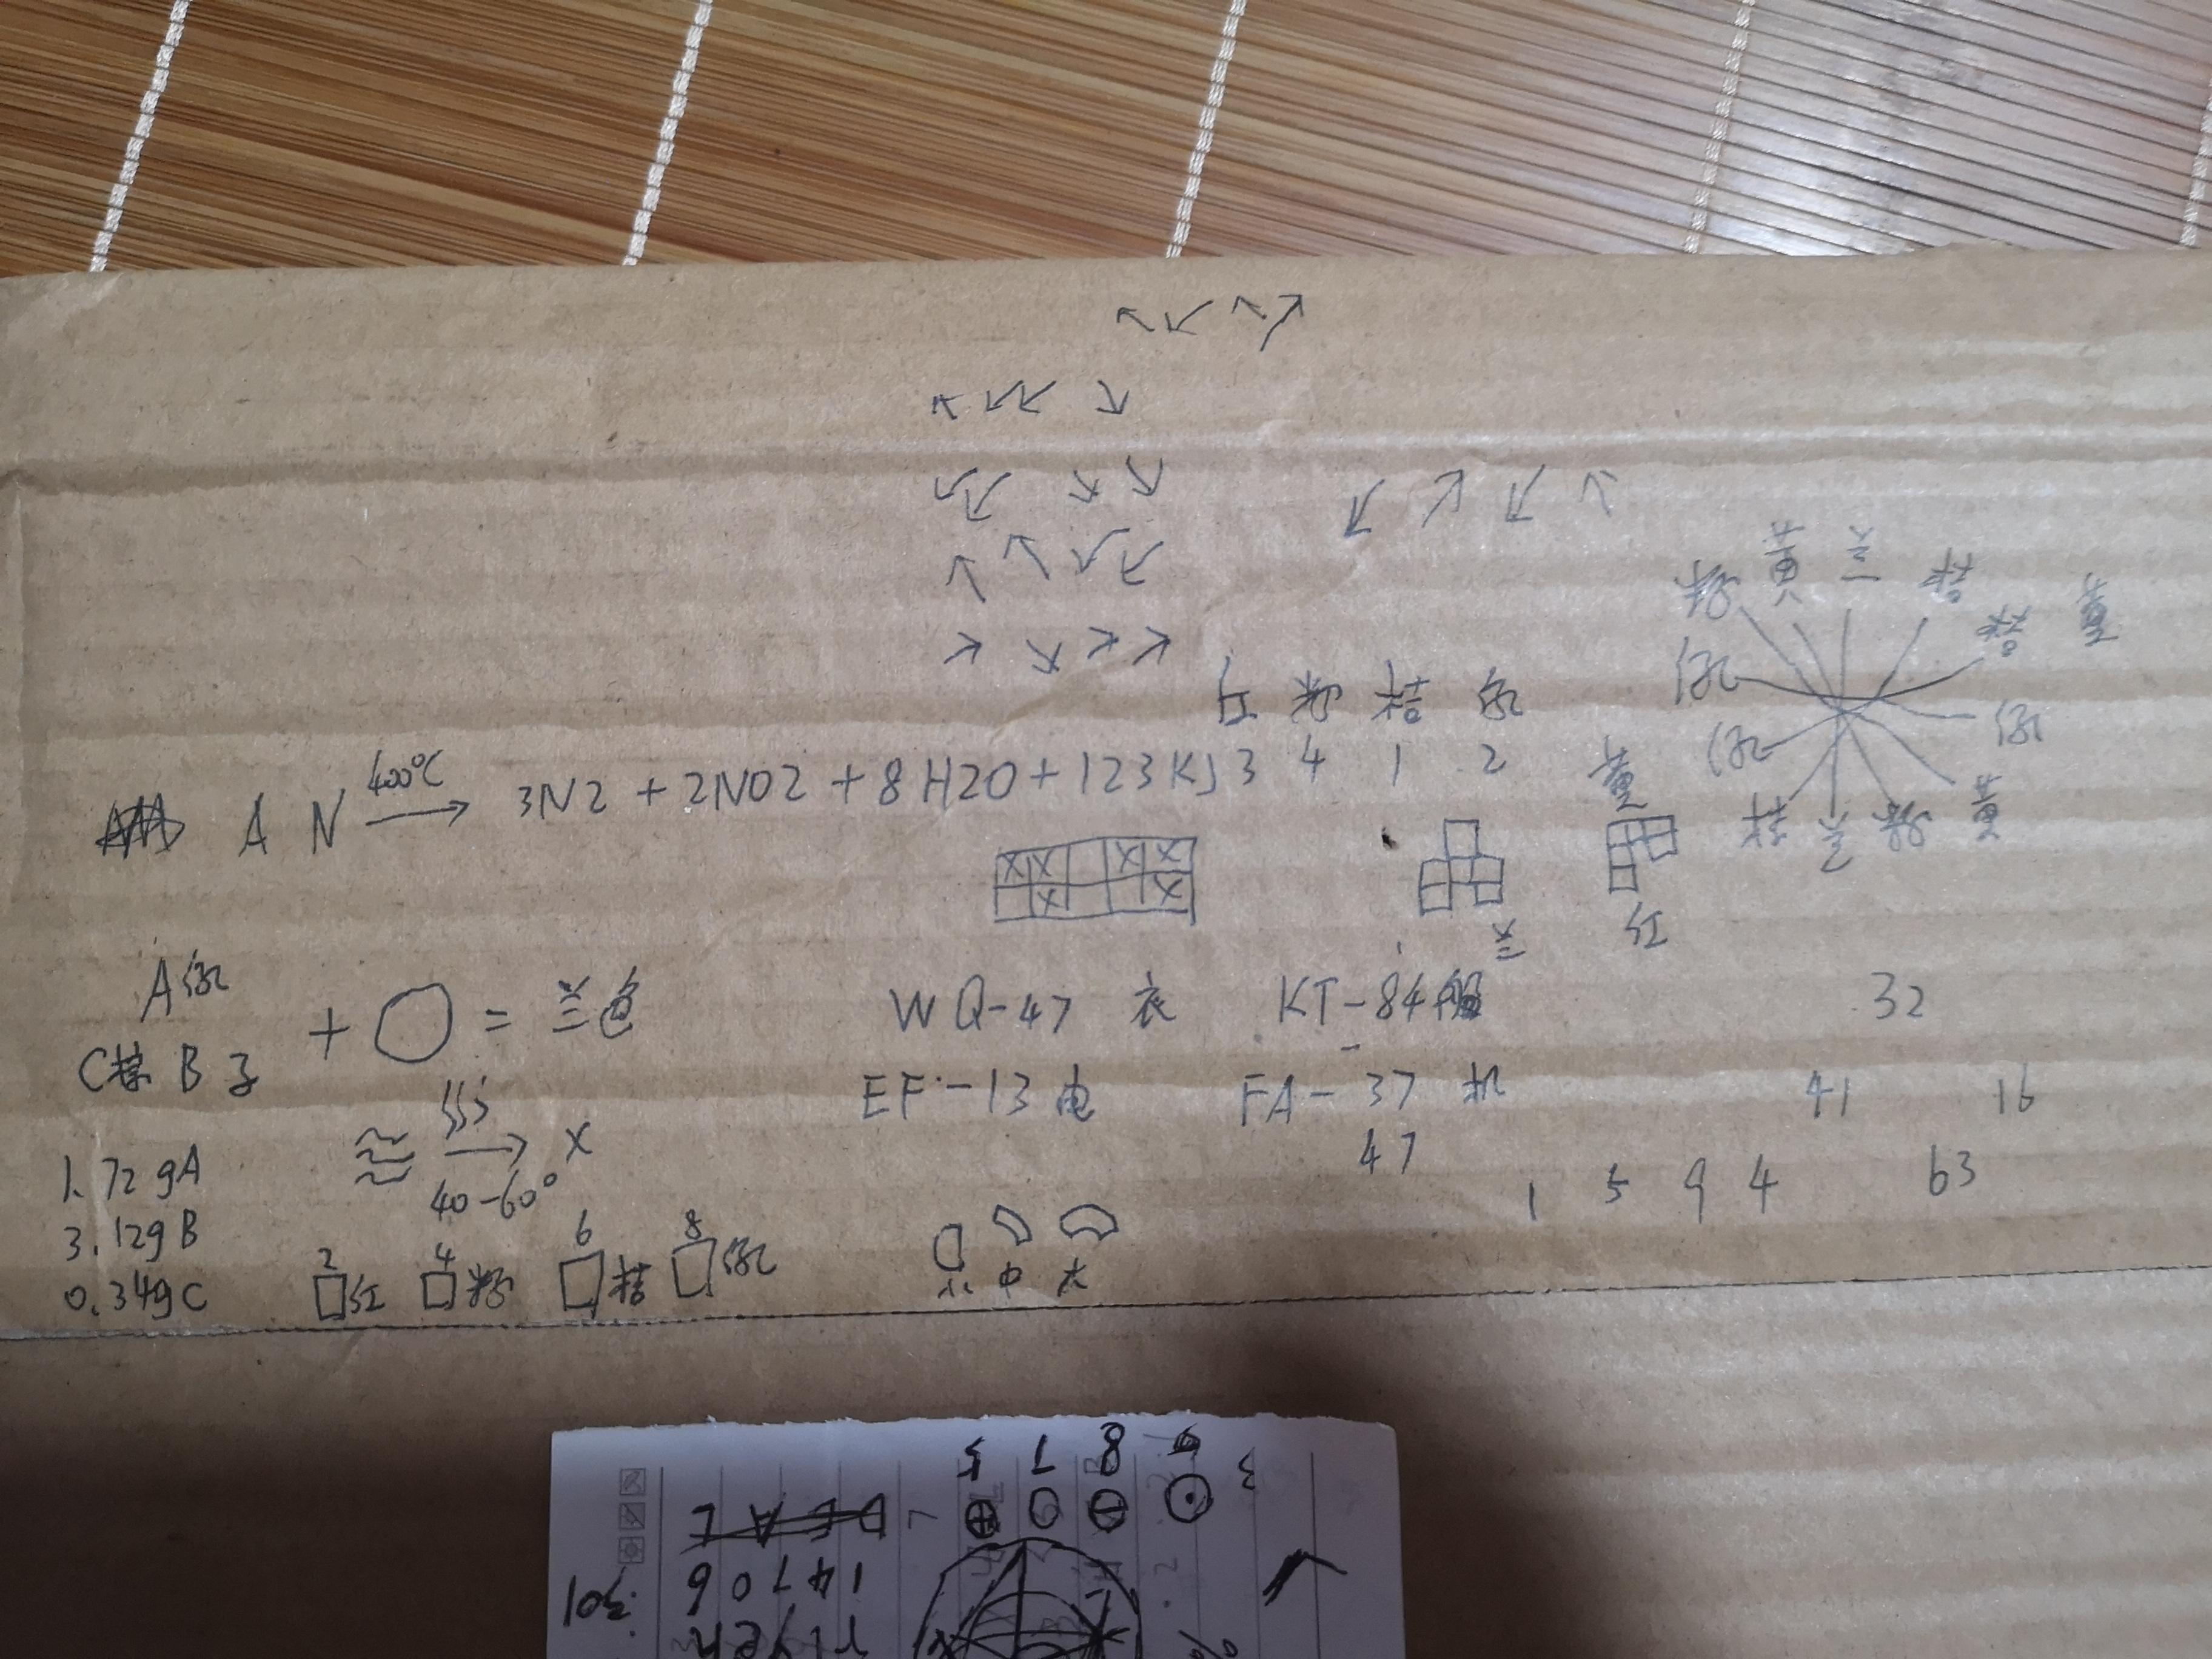 红 粉 桔 绿
3 4 1 2
A N 400℃ → 3N2 + 2NO2 + 8H2O + 123KJ
粉 黄 兰 桔
绿 桔 黄
绿 绿
黄
桔 兰 粉 黄
X X X X
X X
兰 红
A绿
C B子 + ○ = 兰色
40-60° X
1.72gA
3.12gB
0.34gC
2 4 6 8
红 粉 桔 绿
WQ-47 衣 KT-84
EF-13 电 FA-37 机
47
小 中 大
32
41 16
1 5 9 4 63
5 7 8
3
DEAL
14706
301